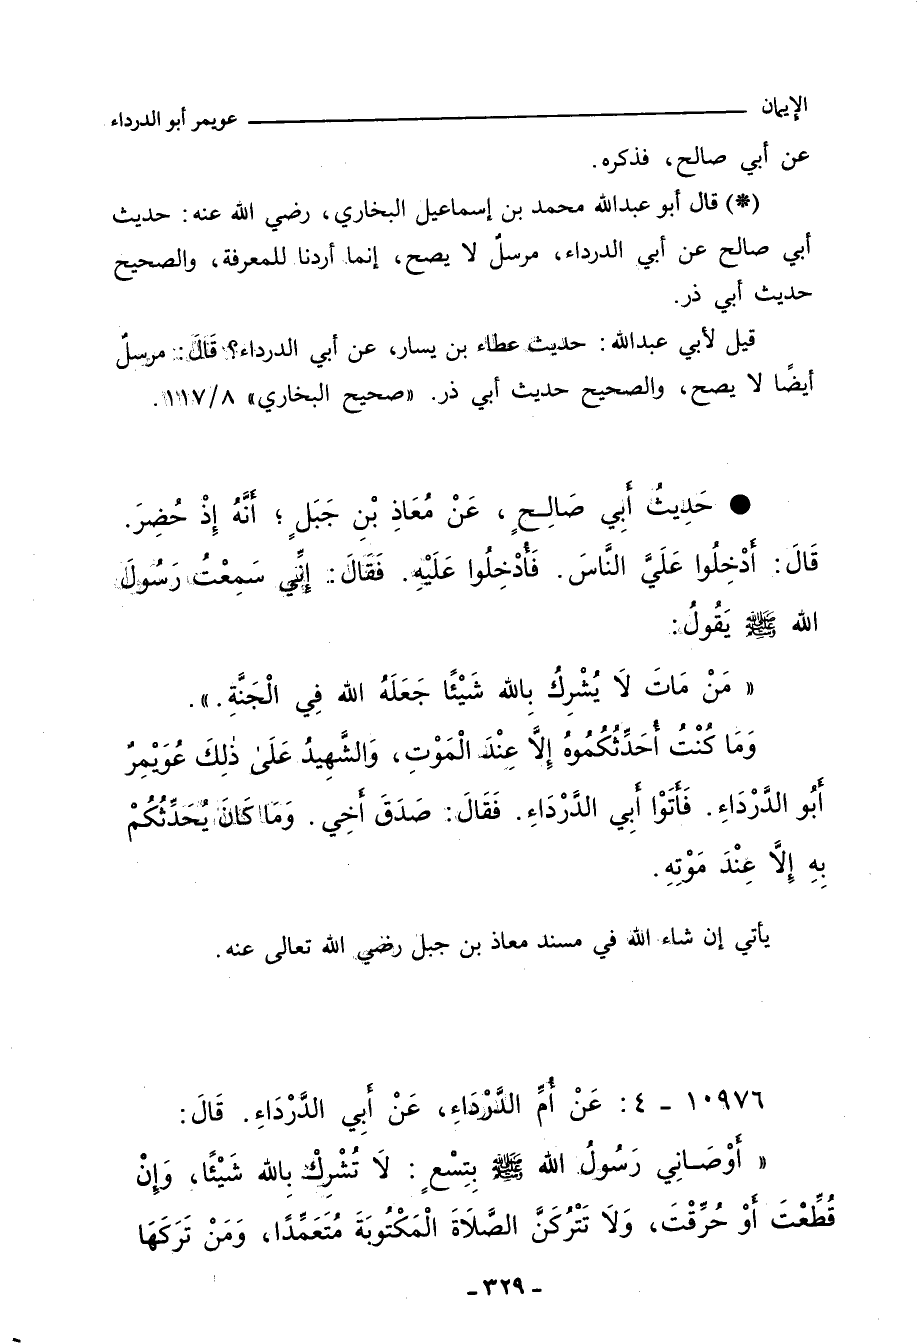 الإيمان ــــــــ عويمر أبو الدرداء
عن أبي صالح، فذكره.
(*) قال أبو عبدالله محمد بن إسماعيل البخاري، رضي الله عنه: حديث
أبي صالح عن أبي الدرداء، مرسلٌ لا يصح، إنما أردنا للمعرفة، والصحيح
حديث أبي ذر.
قيل لأبي عبدالله: حديث عطاء بن يسار، عن أبي الدرداء؟ قَالَ: مرسلٌ
أيضًا لا يصح، والصحيح حديث أبي ذر. «صحيح البخاري» ١١٧/٨.
● حَدِيثُ أَبِي صَالِحٍ، عَنْ مُعَاذِ بْنِ جَبَلٍ؛ أَنَّهُ إِذْ حُضِرَ.
قَالَ: أَدْخِلُوا عَلَيَّ النَّاسَ. فَأُدْخِلُوا عَلَيْهِ. فَقَالَ: إِنِّي سَمِعْتُ رَسُولَ
الله ﷺ يَقُولُ:
« مَنْ مَاتَ لَا يُشْرِكُ بِالله شَيْئًا جَعَلَهُ الله فِي الْجَنَّةِ.».
وَمَا كُنْتُ أُحَدِّثُكُمُوهُ إِلَّا عِنْدَ الْمَوْتِ، وَالشَّهِيدُ عَلَىٰ ذٰلِكَ عُوَيْمِرٌ
أَبُو الدَّرْدَاءِ. فَأَتَوْا أَبِي الدَّرْدَاءِ. فَقَالَ: صَدَقَ أَخِي. وَمَا كَانَ يُحَدِّثُكُمْ
بِهِ إِلَّا عِنْدَ مَوْتِهِ.
يأتي إن شاء الله في مسند معاذ بن جبل رضي الله تعالى عنه.
١٠٩٧٦ - ٤: عَنْ أُمِّ الدَّرْدَاءِ، عَنْ أَبِي الدَّرْدَاءِ. قَالَ:
« أَوْصَانِي رَسُولُ الله ﷺ بِتِسْعٍ: لَا تُشْرِكْ بِالله شَيْئًا، وَإِنْ
قُطِّعْتَ أَوْ حُرِّقْتَ، وَلَا تَتْرُكَنَّ الصَّلَاةَ الْمَكْتُوبَةَ مُتَعَمِّدًا، وَمَنْ تَرَكَهَا
- ٣٢٩ -